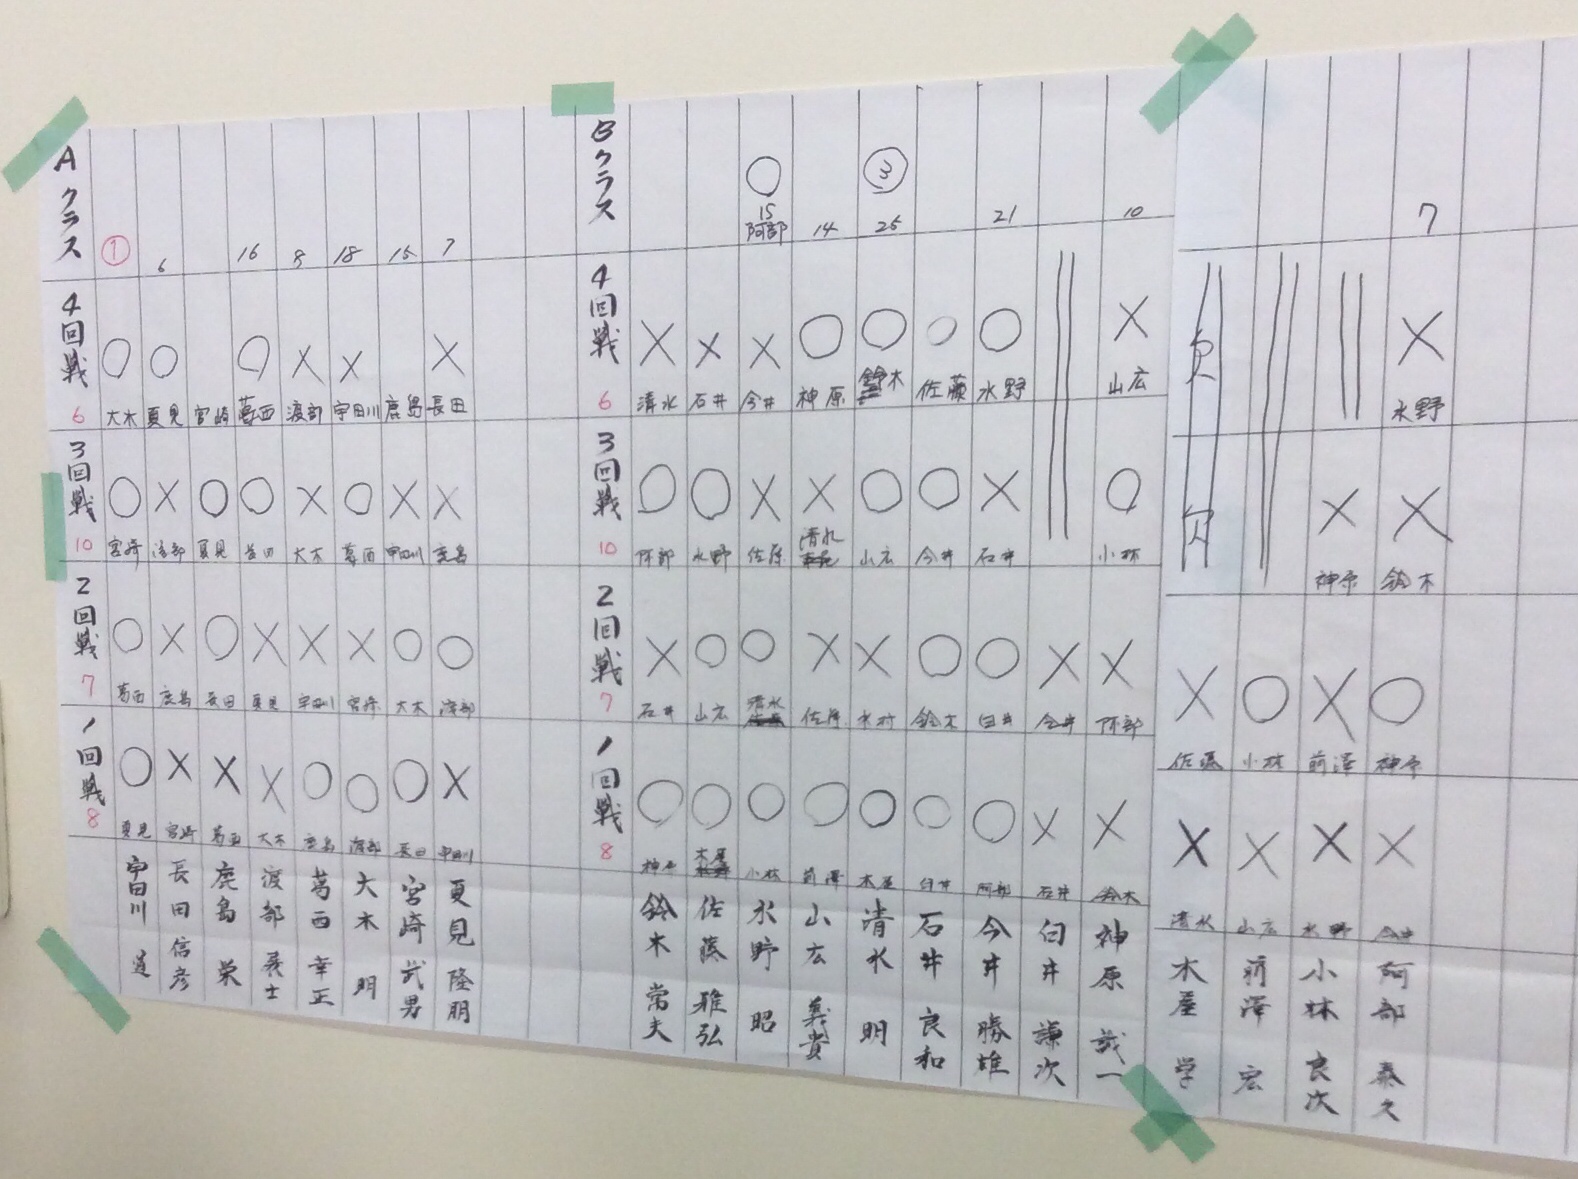 Aクラス
① 6 16 8 18 15 7
4回戦
○ ○ ○ × × ×
6 大木 夏見 宮崎 葛西 渡部 宇田川 鹿島 長田
3回戦
○ × ○ ○ × ○ × ×
10 宮崎 渡部 夏見 長田 大木 葛西 宇田川 鹿島
2回戦
○ × ○ × × × ○ ○
7 葛西 鹿島 長田 夏見 宇田川 宮崎 大木 渡部
1回戦
○ × × × ○ ○ ○ ×
8 夏見 宮崎 葛西 大木 鹿島 渡部 長田 宇田川
宇田川 長田信彦 鹿島栄 渡部義士 葛西幸正 大木明 宮崎武男 夏見隆朋
Bクラス
○ ③
15 阿部 14 25 21 10 7
4回戦
× × × ○ ○ ○ ○ × ×
6 清水 石井 今井 神原 鈴木 佐藤 水野 山広 水野
3回戦
○ ○ × × ○ ○ × ○ × ×
10 阿部 水野 佐藤 清水 山広 今井 石井 小林 神原 鈴木
2回戦
× ○ ○ × × ○ ○ × × × ○ × ○
7 石井 山広 清水 佐藤 鈴木 臼井 今井 阿部 佐藤 小林 前澤 神原
1回戦
○ ○ ○ ○ ○ ○ ○ × × × × × ×
8 神原 木屋 小林 前澤 木屋 臼井 阿部 石井 鈴木 清水 山広 水野 今井
鈴木常夫 佐藤雅弘 水野昭 山広 清水明 石井良和 今井勝雄 臼井謙次 神原誠一 木屋学 前澤宏 小林良次 阿部泰久